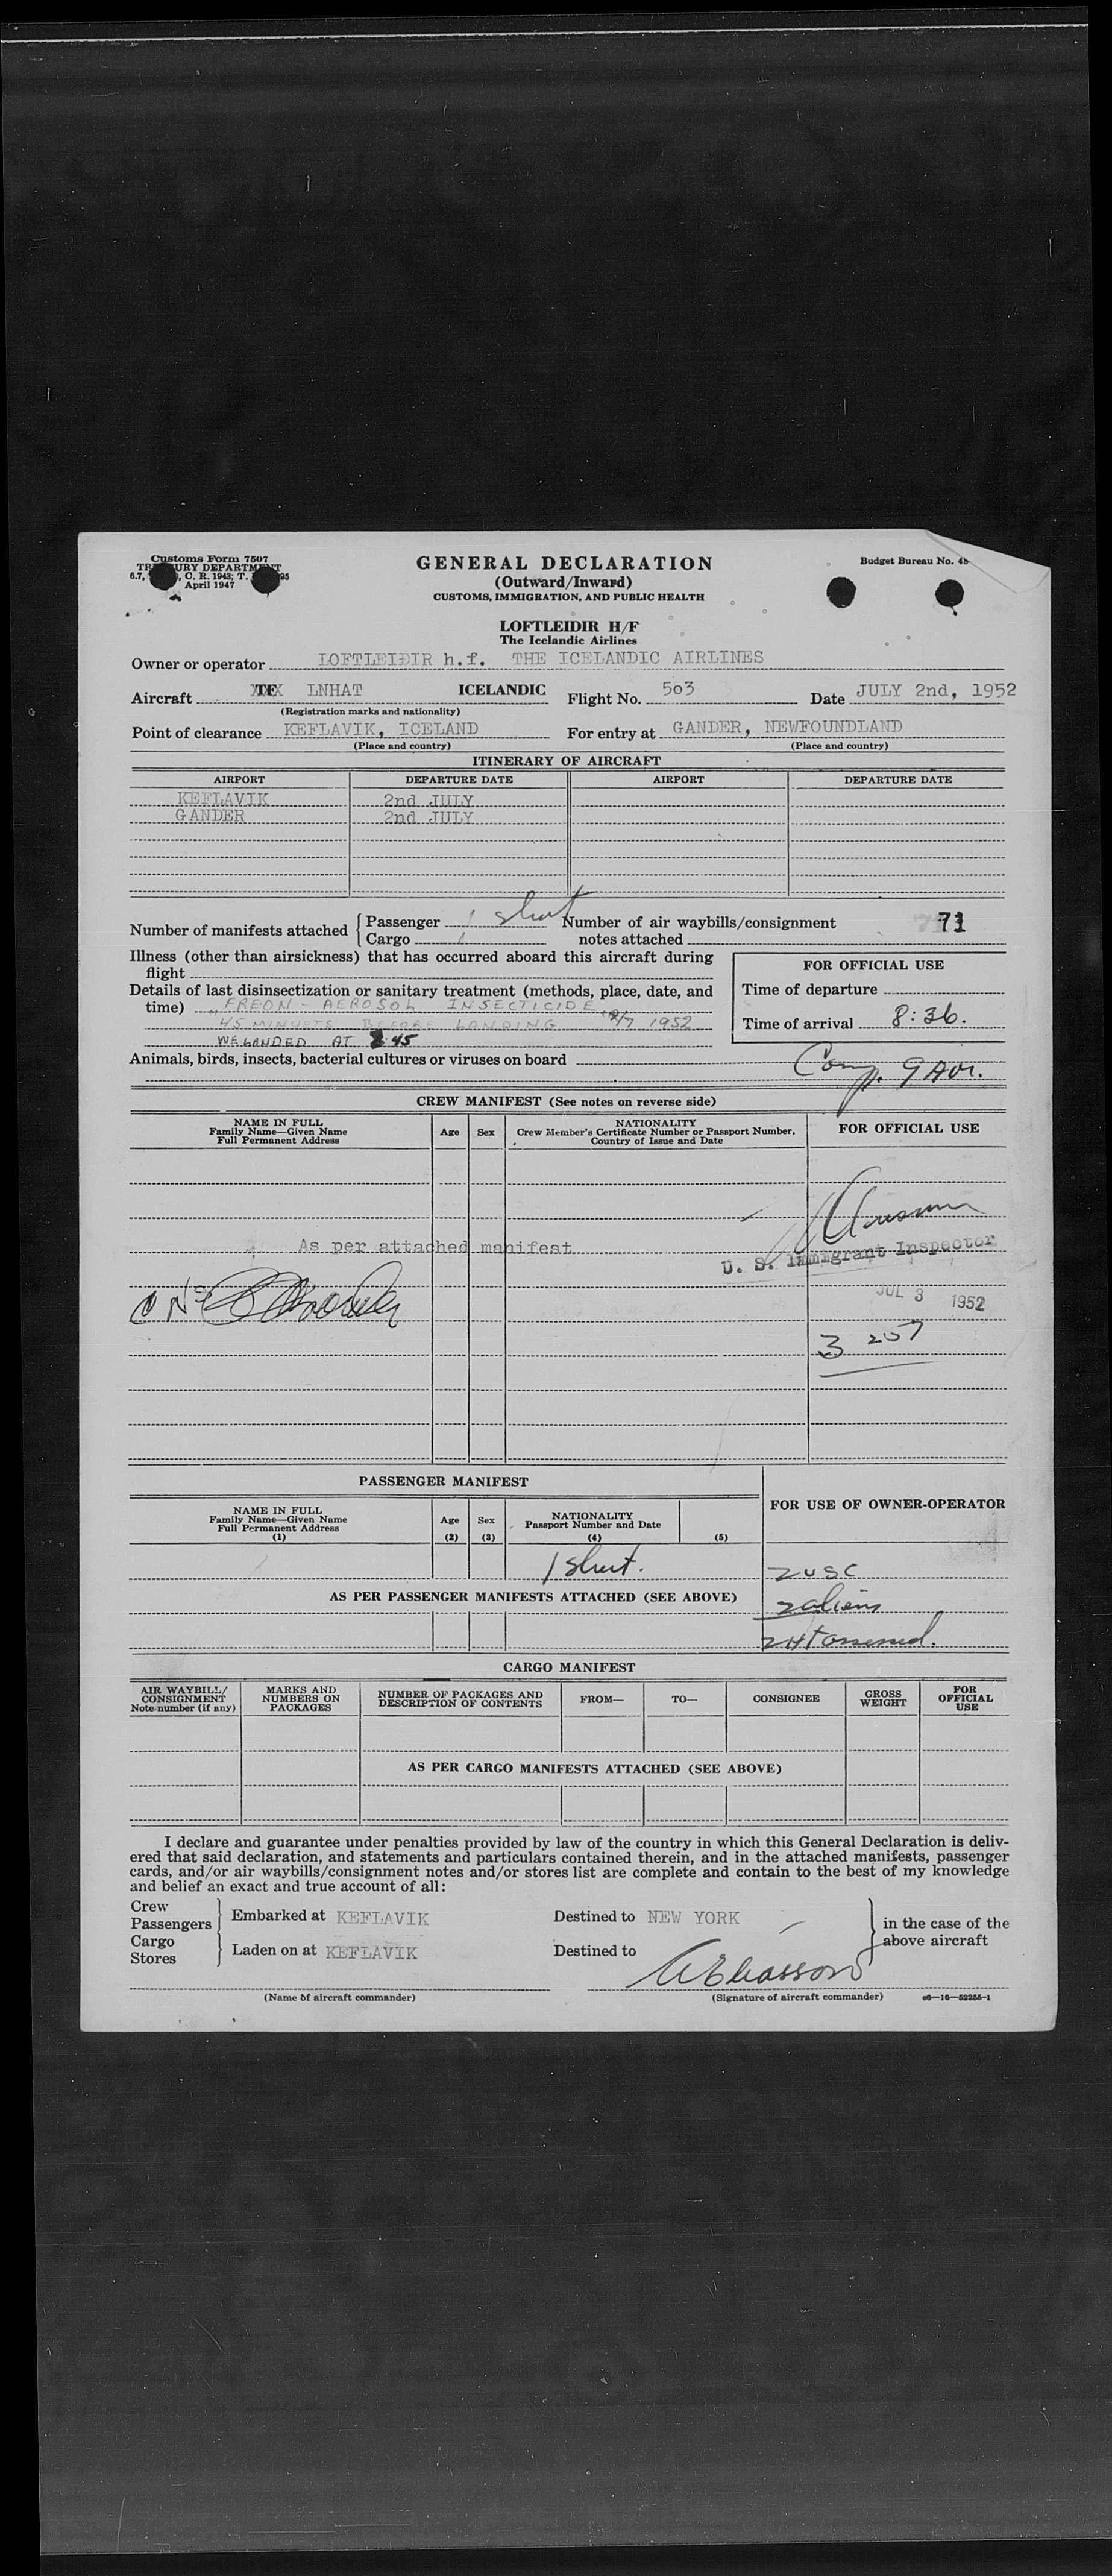 Customs Form 7507
TREASURY DEPARTMENT
C. R. 1943; T.
April 1947
GENERAL DECLARATION
(Outward/Inward)
CUSTOMS, IMMIGRATION, AND PUBLIC HEALTH
Budget Bureau No.
LOFTLEIDIR H/F
The Icelandic Airlines
Owner or operator LOFTLEIDIR h.f. THE ICELANDIC AIRLINES
Aircraft TF LNHAT ICELANDIC Flight No. 503 Date JULY 2nd, 1952
(Registration marks and nationality)
Point of clearance KEFLAVIK, ICELAND For entry at GANDER, NEWFOUNDLAND
(Place and country) (Place and country)
ITINERARY OF AIRCRAFT
AIRPORT DEPARTURE DATE AIRPORT DEPARTURE DATE
KEFLAVIK 2nd JULY
GANDER 2nd JULY
Number of manifests attached Passenger 1 sheet Number of air waybills/consignment 71
Cargo 1 notes attached
Illness (other than airsickness) that has occurred aboard this aircraft during
flight
FOR OFFICIAL USE
Details of last disinsectization or sanitary treatment (methods, place, date, and
time) FREON - AEROSOL INSECTICIDE
Time of departure
45 MINUETS BEFORE LANDING 2/7 1952
Time of arrival 8:36.
WE LANDED AT 45
Animals, birds, insects, bacterial cultures or viruses on board
Comp.
CREW MANIFEST (See notes on reverse side)
NAME IN FULL
Family Name—Given Name
Full Permanent Address
Age Sex
NATIONALITY
Crew Member's Certificate Number or Passport Number,
Country of Issue and Date
FOR OFFICIAL USE
As per attached manifest
U. S. Immigrant Inspector
JUL 3 1952
3 257
PASSENGER MANIFEST
FOR USE OF OWNER-OPERATOR
NAME IN FULL
Family Name—Given Name
Full Permanent Address
(1)
Age
(2)
Sex
(3)
NATIONALITY
Passport Number and Date
(4)
(5)
1 sheet.
2 USC
AS PER PASSENGER MANIFESTS ATTACHED (SEE ABOVE)
2 aliens
2 HT assessed.
CARGO MANIFEST
AIR WAYBILL/
CONSIGNMENT
Note number (if any)
MARKS AND
NUMBERS ON
PACKAGES
NUMBER OF PACKAGES AND
DESCRIPTION OF CONTENTS
FROM—
TO—
CONSIGNEE
GROSS
WEIGHT
FOR
OFFICIAL
USE
AS PER CARGO MANIFESTS ATTACHED (SEE ABOVE)
I declare and guarantee under penalties provided by law of the country in which this General Declaration is deliv-
ered that said declaration, and statements and particulars contained therein, and in the attached manifests, passenger
cards, and/or air waybills/consignment notes and/or stores list are complete and contain to the best of my knowledge
and belief an exact and true account of all:
Crew
Passengers Embarked at KEFLAVIK Destined to NEW YORK in the case of the
Cargo above aircraft
Stores Laden on at KEFLAVIK Destined to
AEliasson
(Name of aircraft commander) (Signature of aircraft commander) c6—16—52255-1